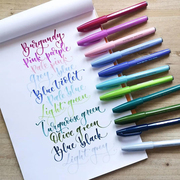 Burgundy
Pink purple
Pale pink
Grey
Blue violet
Pale blue
Light green
Turquoise green
Olive green
Blue Black
Light grey